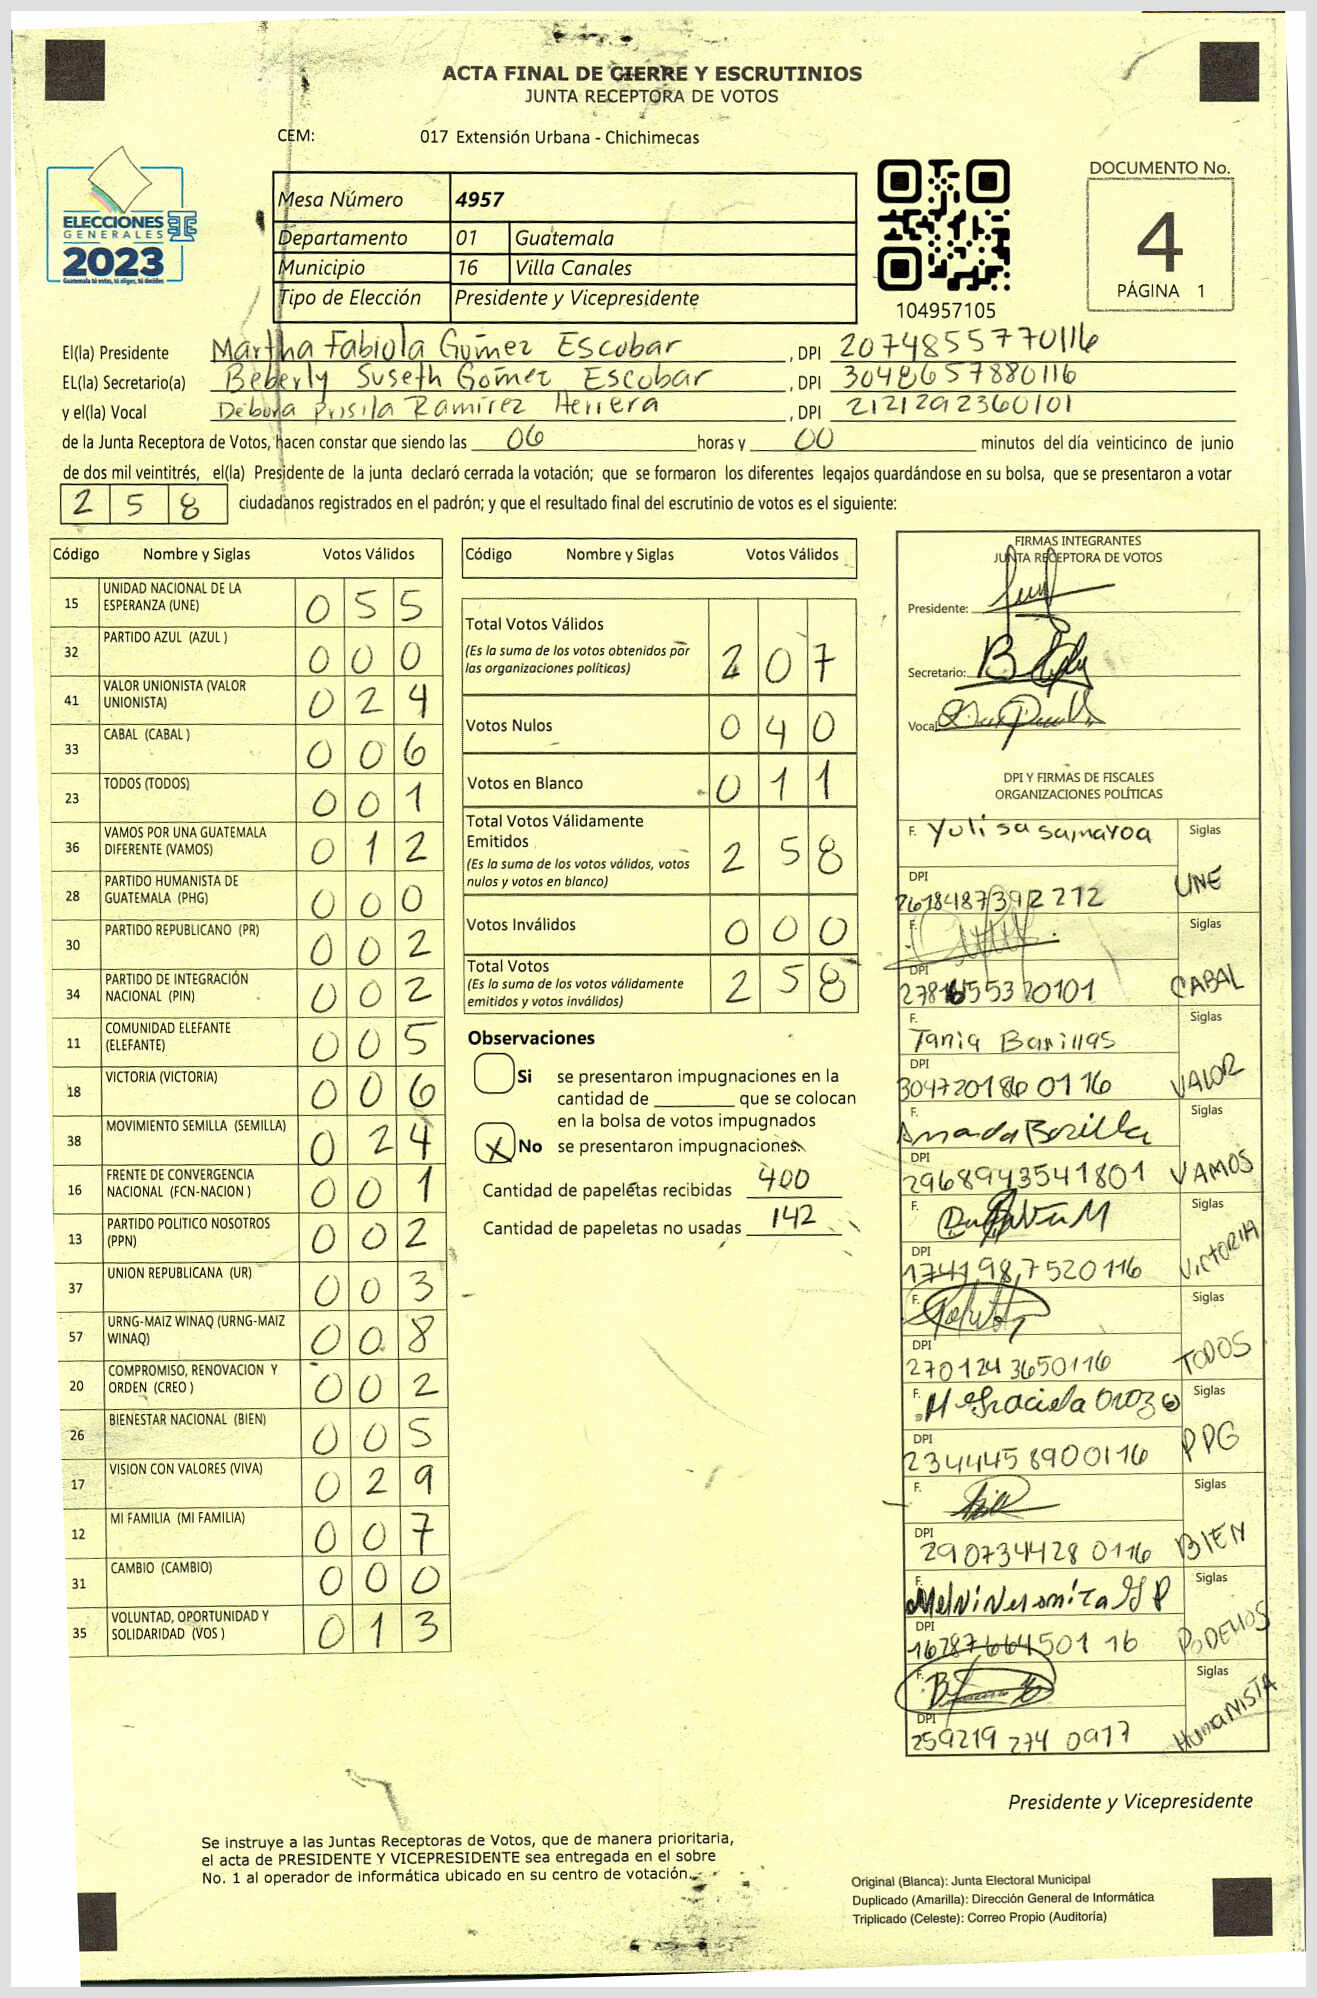 ACTA FINAL DE CIERRE Y ESCRUTINIOS
JUNTA RECEPTORA DE VOTOS
CEM: 017 Extensión Urbana - Chichimecas
ELECCIONES
GENERALES
2023
Guatemala tú votas, tú eliges, tú decides
Mesa Número 4957
Departamento 01 Guatemala
Municipio 16 Villa Canales
Tipo de Elección Presidente y Vicepresidente
104957105
DOCUMENTO No.
4
PÁGINA 1
El(la) Presidente Martha Fabiola Gómez Escobar, DPI 2074855770116
EL(la) Secretario(a) Beberly Suseth Gómez Escobar, DPI 3048657880116
y el(la) Vocal Debora Prisila Ramirez Herrera, DPI 2121292360101
de la Junta Receptora de Votos, hacen constar que siendo las 06 horas y 00 minutos del día veinticinco de junio
de dos mil veintitrés, el(la) Presidente de la junta declaró cerrada la votación; que se formaron los diferentes legajos guardándose en su bolsa, que se presentaron a votar
258 ciudadanos registrados en el padrón; y que el resultado final del escrutinio de votos es el siguiente:
Código Nombre y Siglas Votos Válidos
15 UNIDAD NACIONAL DE LA ESPERANZA (UNE) 055
32 PARTIDO AZUL (AZUL ) 000
41 VALOR UNIONISTA (VALOR UNIONISTA) 024
33 CABAL (CABAL ) 006
23 TODOS (TODOS) 001
36 VAMOS POR UNA GUATEMALA DIFERENTE (VAMOS) 012
28 PARTIDO HUMANISTA DE GUATEMALA (PHG) 000
30 PARTIDO REPUBLICANO (PR) 002
34 PARTIDO DE INTEGRACIÓN NACIONAL (PIN) 002
11 COMUNIDAD ELEFANTE (ELEFANTE) 005
18 VICTORIA (VICTORIA) 006
38 MOVIMIENTO SEMILLA (SEMILLA) 024
16 FRENTE DE CONVERGENCIA NACIONAL (FCN-NACION ) 001
13 PARTIDO POLITICO NOSOTROS (PPN) 002
37 UNION REPUBLICANA (UR) 003
57 URNG-MAIZ WINAQ (URNG-MAIZ WINAQ) 008
20 COMPROMISO, RENOVACION Y ORDEN (CREO ) 002
26 BIENESTAR NACIONAL (BIEN) 005
17 VISION CON VALORES (VIVA) 029
12 MI FAMILIA (MI FAMILIA) 007
31 CAMBIO (CAMBIO) 000
35 VOLUNTAD, OPORTUNIDAD Y SOLIDARIDAD (VOS ) 013
Código Nombre y Siglas Votos Válidos
Total Votos Válidos 207
(Es la suma de los votos obtenidos por
las organizaciones políticas)
Votos Nulos 040
Votos en Blanco 011
Total Votos Válidamente
Emitidos 258
(Es la suma de los votos válidos, votos
nulos y votos en blanco)
Votos Inválidos 000
Total Votos 258
(Es la suma de los votos válidamente
emitidos y votos inválidos)
Observaciones
Si se presentaron impugnaciones en la
cantidad de ________ que se colocan
en la bolsa de votos impugnados
X No se presentaron impugnaciones.
Cantidad de papeletas recibidas 400
Cantidad de papeletas no usadas 142
FIRMAS INTEGRANTES
JUNTA RECEPTORA DE VOTOS
Presidente:
Secretario:
Vocal
DPI Y FIRMAS DE FISCALES
ORGANIZACIONES POLÍTICAS
F. Yulisa Samayoa Siglas
DPI UNE
2618487392212
F. Siglas
DPI CABAL
F. Siglas
Tania Barillas
DPI VALOR
3047201860116
F. Siglas
DPI VAMOS
2968943541801
F. Siglas
DPI VICTORIA
1741987520116
F. Siglas
DPI TODOS
2701243650116
F. Siglas
DPI PPG
2344458900116
F. Siglas
DPI BIEN
2907344280116
F. Siglas
DPI PODEMOS
1628766450116
F. Siglas
DPI HumaNISTA
259219 274 0917
Presidente y Vicepresidente
Se instruye a las Juntas Receptoras de Votos, que de manera prioritaria,
el acta de PRESIDENTE Y VICEPRESIDENTE sea entregada en el sobre
No. 1 al operador de informática ubicado en su centro de votación.
Original (Blanca): Junta Electoral Municipal
Duplicado (Amarilla): Dirección General de Informática
Triplicado (Celeste): Correo Propio (Auditoría)